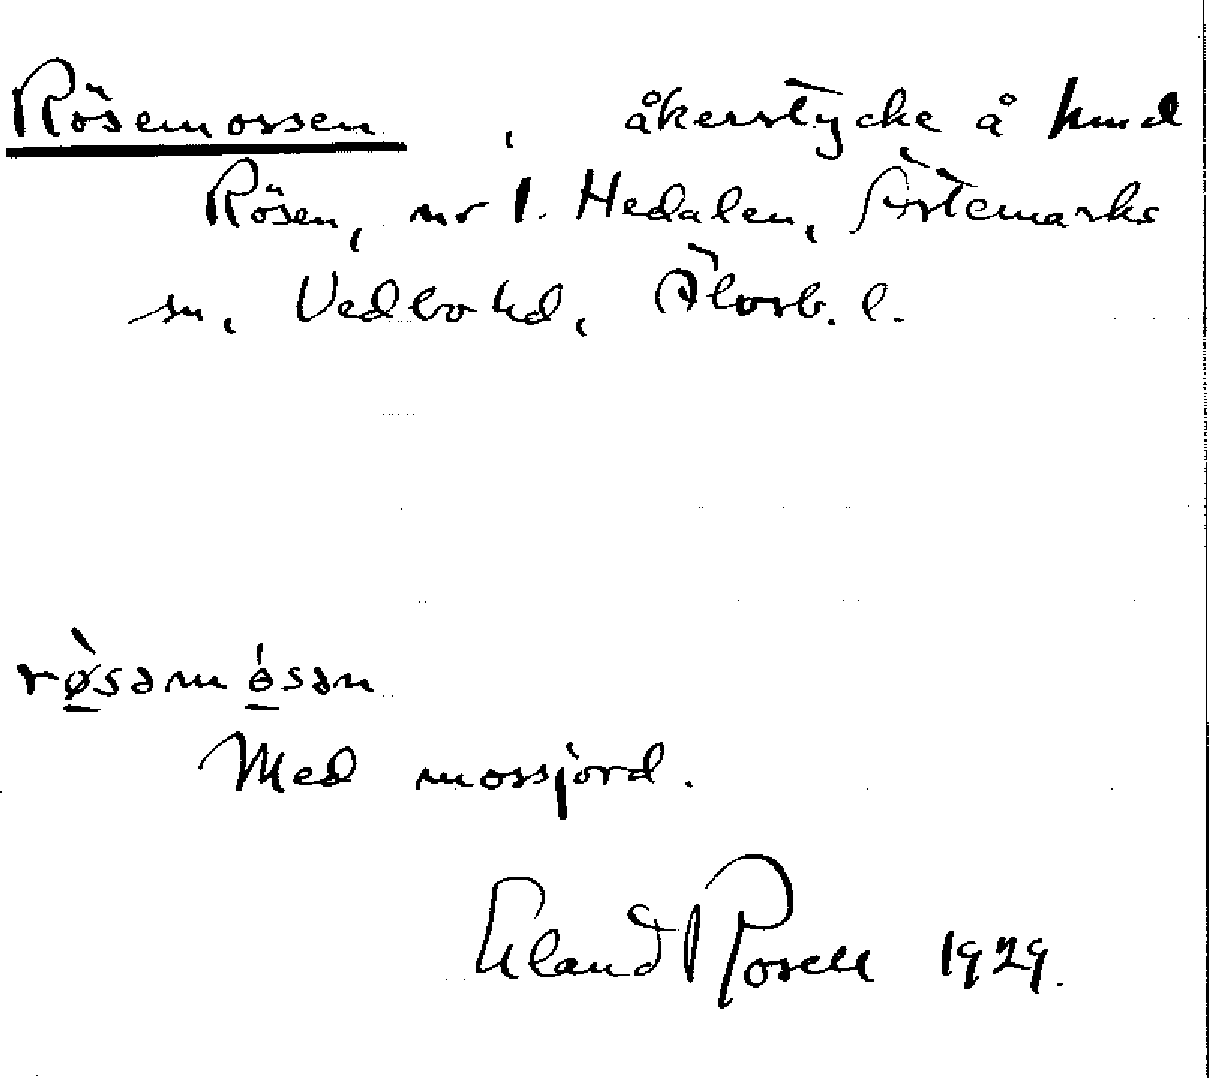 Rösemossen, åkerstycke å hmd
Rösen, nr 1. Hedalen, Ärtemarks
sn, Vedbo hd, Älvsb. l.
rø̀səmósən
Med mossjord.
Erland Rosell 1929.